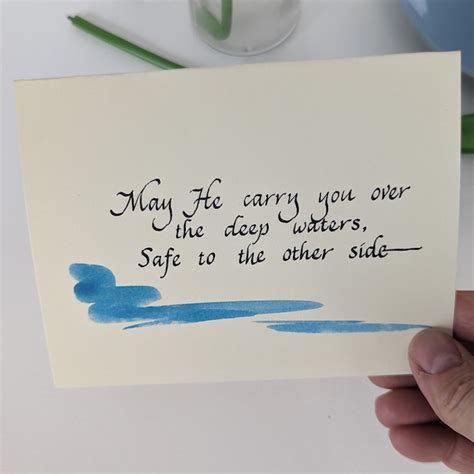 May He carry you over
the deep waters,
Safe to the other side—